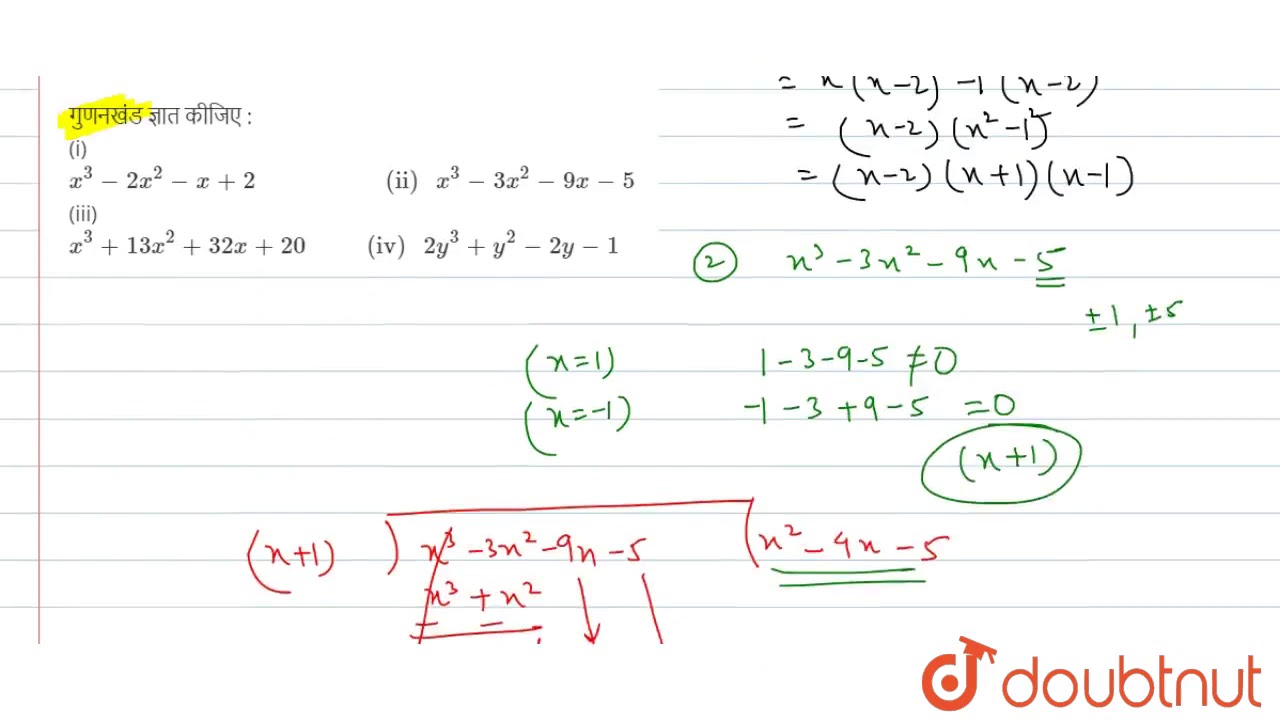 गुणनखंड ज्ञात कीजिए :
(i)
x³ − 2x² − x + 2 (ii) x³ − 3x² − 9x − 5
(iii)
x³ + 13x² + 32x + 20 (iv) 2y³ + y² − 2y − 1
(x-2) -1 (x-2)
= (x-2) (x² -1²)
= (x-2) (x+1) (x-1)
② x³ - 3x² - 9x - 5
±1, ±5
(x=1) 1 - 3 - 9 - 5 ≠ 0
(x=-1) -1 - 3 + 9 - 5 = 0
(x+1)
(x+1) ) x³ - 3x² - 9x - 5 ( x² - 4x - 5
x³ + x²
- -
doubtnut